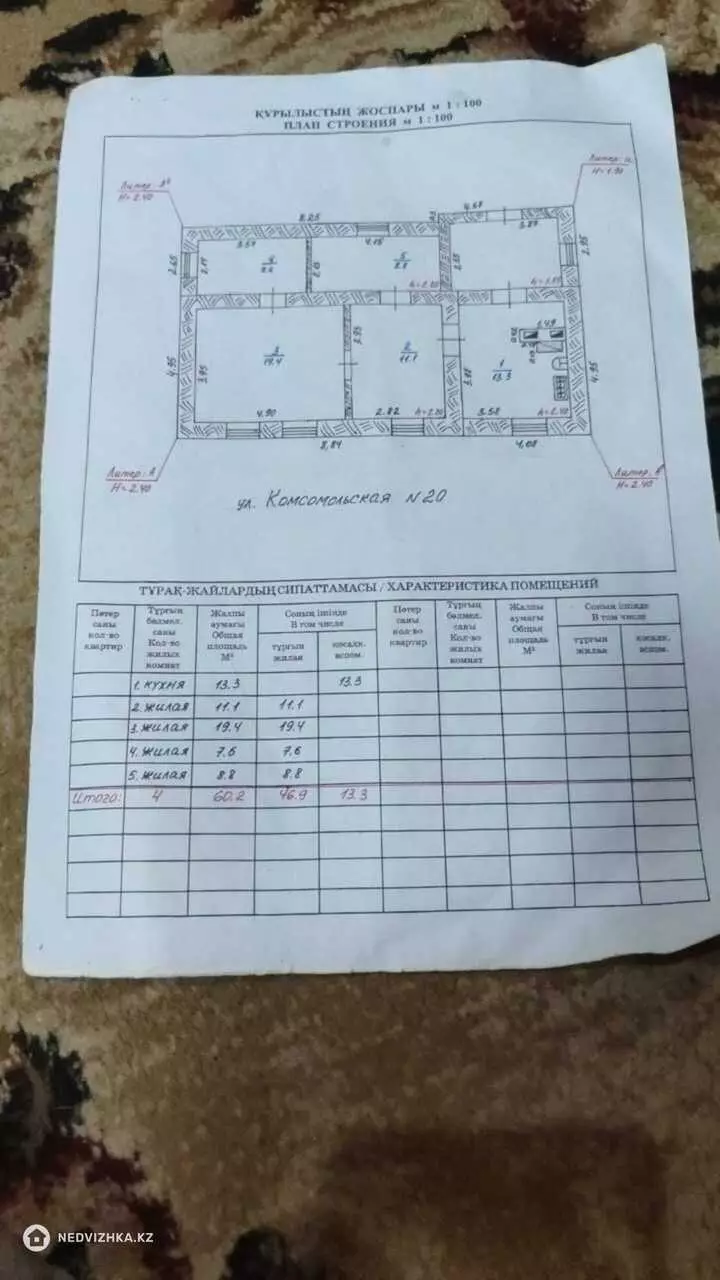 ҚҰРЫЛЫСТЫҢ ЖОСПАРЫ м 1 : 100
ПЛАН СТРОЕНИЯ м 1 : 100
Литер: а
Н=1.90
Литер: А¹
Н=2.40
8.25
4.67
3.87
3.57
4.15
2.65
2.95
4
7.6
5
8.8
4.95
3.95
3
19.4
3.95
2
11.1
3.98
1
13.3
1.49
4.95
4.90
2.82
3.58
h=2.40
8,84
4,08
Литер: А
Н=2.40
Литер: В
Н=2.40
ул. Комсомольская №20
ТҰРАҚ-ЖАЙЛАРДЫҢ СИПАТТАМАСЫ / ХАРАКТЕРИСТИКА ПОМЕЩЕНИЙ
Пәтер саны кол-во квартир
Тұрғын бөлмел. саны Кол-во жилых комнат
Жалпы аумағы Общая площадь М²
Соның ішінде В том числе
тұрғын жилая
көсалк. вспом.
Пәтер саны кол-во квартир
Тұрғын бөлмел. саны Кол-во жилых комнат
Жалпы аумағы Общая площадь М²
Соның ішінде В том числе
тұрғын жилая
көсалк. вспом.
1. КУХНЯ 13.3 13.3
2. ЖИЛАЯ 11.1 11.1
3. ЖИЛАЯ 19.4 19.4
4. ЖИЛАЯ 7.6 7.6
5. ЖИЛАЯ 8.8 8.8
Итого: 4 60.2 46.9 13.3
NEDVIZHKA.KZ